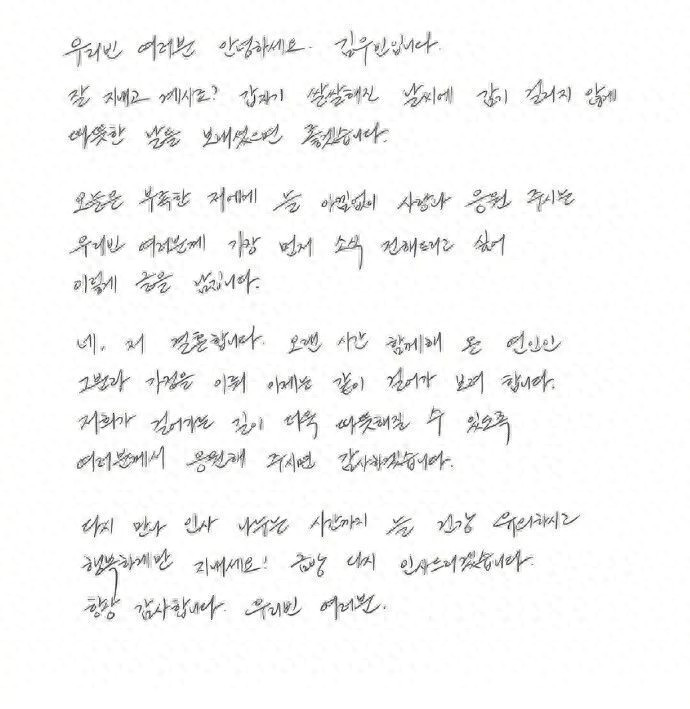 우리빈 여러분 안녕하세요. 김우빈입니다.
잘 지내고 계시죠? 갑자기 쌀쌀해진 날씨에 감기 걸리지 않게
따뜻한 날들 보내셨으면 좋겠습니다.
오늘은 부족한 저에게 늘 아낌없이 사랑과 응원 주시는
우리빈 여러분께 가장 먼저 소식 전해드리고 싶어
이렇게 글을 남깁니다.
네. 저 결혼합니다. 오랜 시간 함께해 온 연인인
그분과 가정을 이뤄 이제는 같이 걸어가 보려 합니다.
저희가 걸어가는 길이 더욱 따뜻해질 수 있도록
여러분께서 응원해 주시면 감사하겠습니다.
다시 만나 인사 나누는 시간까지 늘 건강 유의하시고
행복하게만 지내세요! 금방 다시 인사드리겠습니다.
항상 감사합니다. 우리빈 여러분.